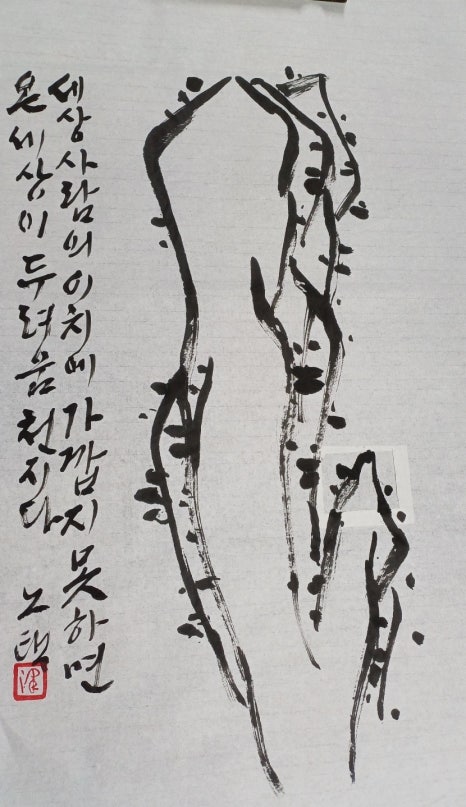 세상 사람의 이치에 가깝지 못하면
온 세상이 두려움 천지다 노택